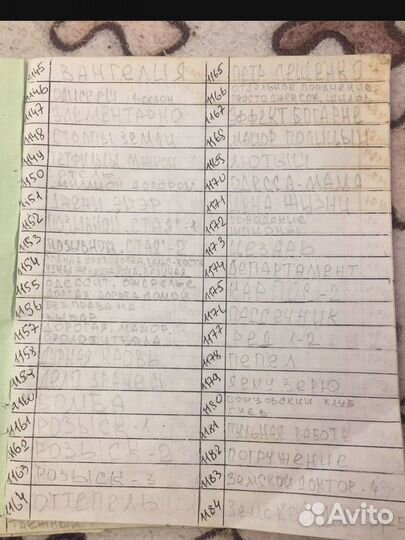 1145 ВАНГЕЛИЯ
1146 ОДИССЕЙ 1-СЕЗОН
1147 ЭЛЕМЕНТАРНО
1148 СТОЛПЫ ЗЕМЛИ
1149
1150 ОТЕЛЬ
МИЛЛИОН ДОЛЛАРОВ
1151 ДЖЕЙН ЭЙЭР
1152 ПОЗЫВНОЙ СТАЯ-1
1153 ПОЗЫВНОЙ СТАЯ-2
1154
1155 ОДЕССИТ, ОЖЕРЕЛЬЕ
1156 БЕЗ ПРАВА НА
ВЫБОР
1157 ДОРОГАЯ, МАЙОР
1158 ДУРНАЯ КРОВЬ
1159 ДЕЛО
1160 БОМБА
1161 РОЗЫСК-1
1162 РОЗЫСК-2
1163 РОЗЫСК 3
1164 ОТТЕПЕЛЬ
1165 ПЕТР ЛЕЩЕНКО
1166 ОТДЕЛЬНОЕ ПОРУЧЕНИЕ,
ПРОСТО ДЖЕКСОН,
1167 ЭФФЕКТ БОГАРНЕ
1168 МАЙОР ПОЛИЦИИ
1169 ЛЮТЫЙ
1170 ОДЕССА-МАМА
1171 ЦЕНА ЖИЗНИ
1172 ГОРОДСКИЕ
ШПИОНЫ
1173 ЦЕЗАРЬ
1174 ДЕПАРТАМЕНТ
1175 КАРПОВ-2
1176 ПАСЕЧНИК
1177 РЕД 1-2
1178 ПЕПЕЛ
1179 Я ЕМУ ВЕРЮ
1180 БОЙЦОВСКИЙ КЛУБ
ГНЕВ
1181 ПЫЛЬНАЯ РАБОТА
1182 ПОГРУЖЕНИЕ
1183 ЗЕМСКОЙ ДОКТОР-4
1184 ЗЕМСКО
Avito